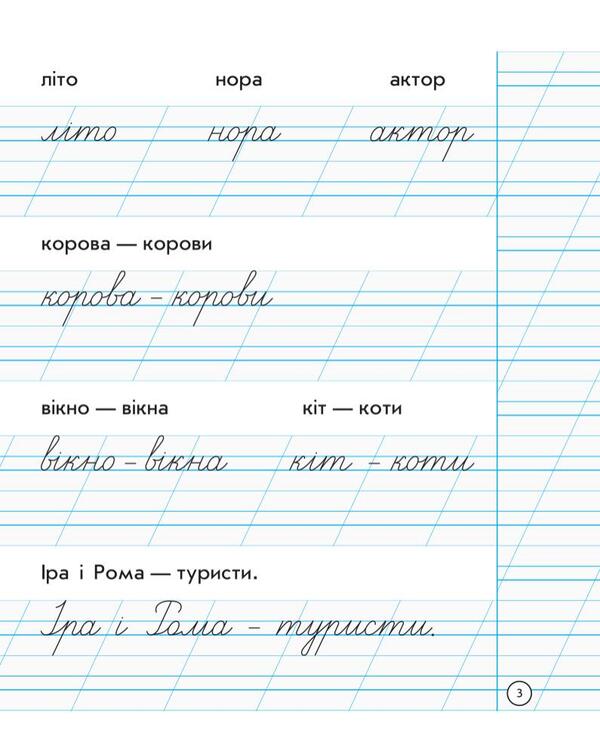 літо нора актор
літо нора актор
корова — корови
корова – корови
вікно — вікна кіт — коти
вікно – вікна кіт – коти
Іра і Рома — туристи.
Іра і Рома – туристи.
3